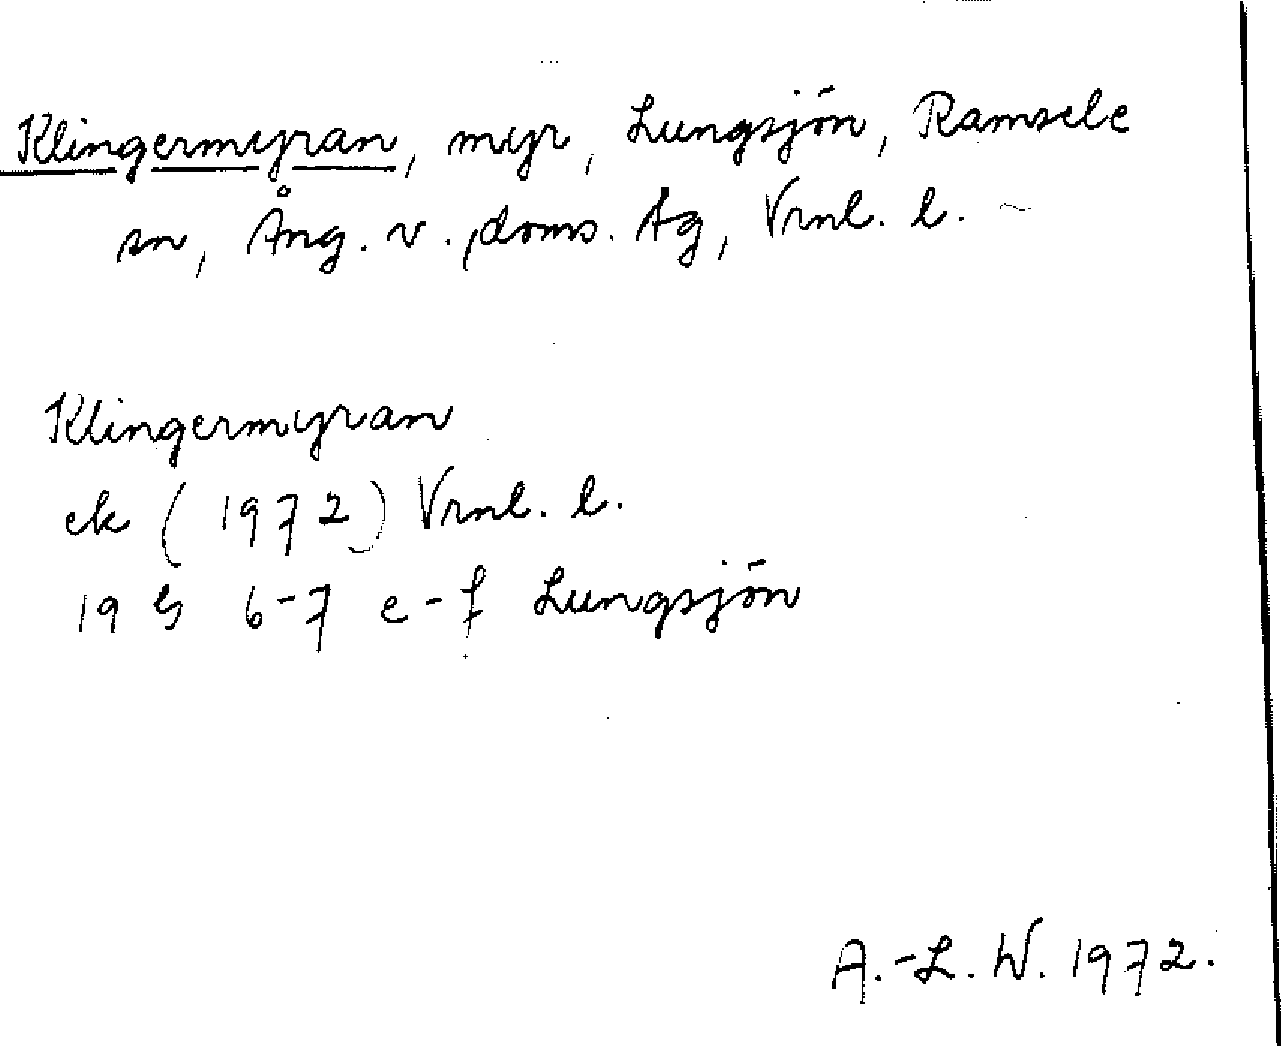 Klingermyran, myr, Lungsjön, Ramsele
sn, Ång. v., doms. Åg, Vrnl. l.
Klingermyran
ek (1972) Vrnl. l.
19 G 6-7 e-f Lungsjön
A.-L. W. 1972.